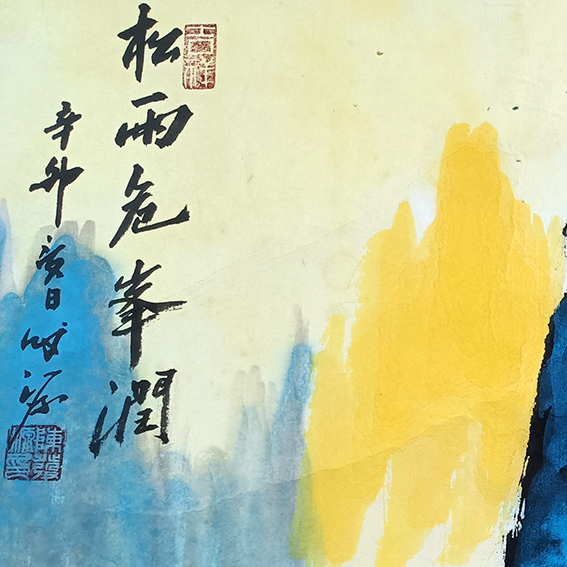 松雨危峯潤
吉祥
辛卯夏日